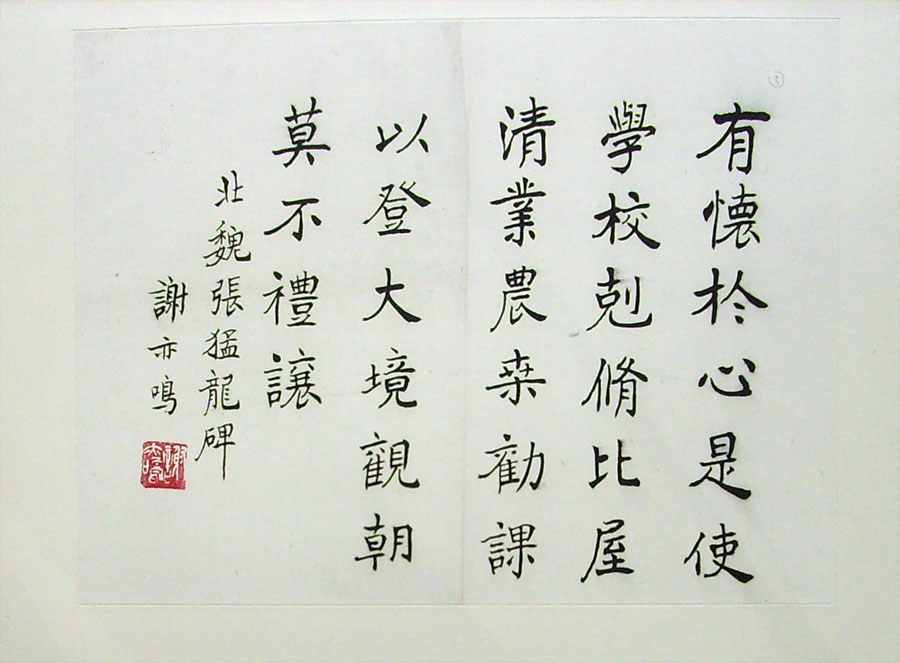 有懐於心是使
學校剋脩比屋
清業農桒勸課
以登大境觀朝
莫不禮讓
北魏張猛龍碑
謝亦鳴